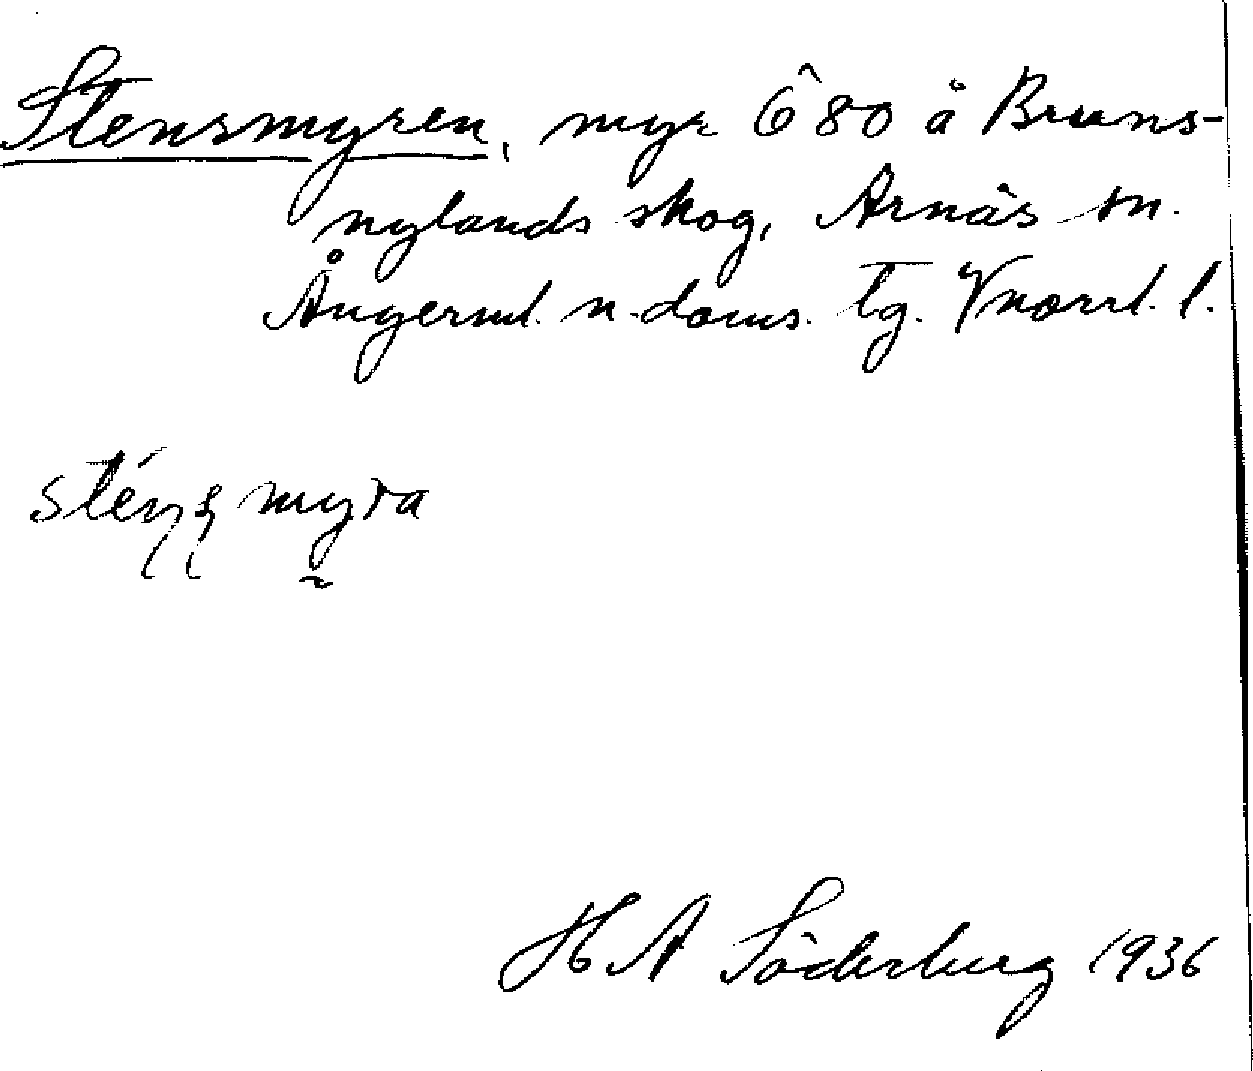 Stensmyren, myr 6̂ 80 å Bruns-
nylands skog, Arnäs sn.
Ångerml. n. doms. tg. Vnorrl. l.
sténs myra
H A Söderberg 1936